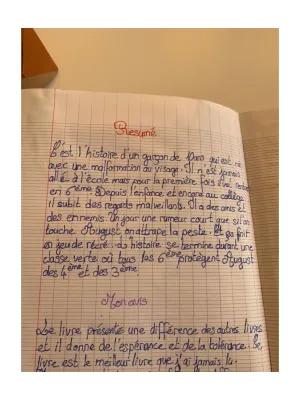 Resumé
C'est l'histoire d'un garçon de qui est né
avec une malformation au visage. Il n'est jamais
allé à l'école mais pour la première fois il
en 6ème Depuis l'enfance et encore au collège
il subit des regards malveillants. Il a des amis et
des ennemis. Un jour une rumeur court que si on
touche August on attrape la peste. Et ça fait
un jeu de récré. L'histoire se termine durant une
classe verte où tous les 6ème protègent August
des 4ème et des 3ème.
Mon avis
Le livre présente une différence des autres livres
et il donne de l'espérance et de la tolérance. Le
livre est le meilleur livre que j'ai jamais lu.